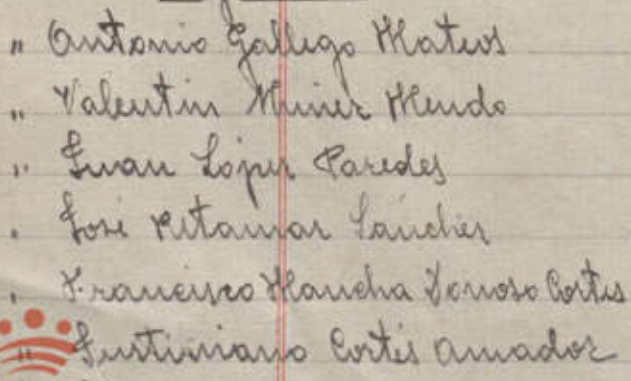 " Antonio Gallego Mateos
" Valentin Muñez Mendo
" Juan López Paredes
" José Retamar Sánchez
" Francisco Mancha Donoso Cortés
" Justiniano Cortés Amador